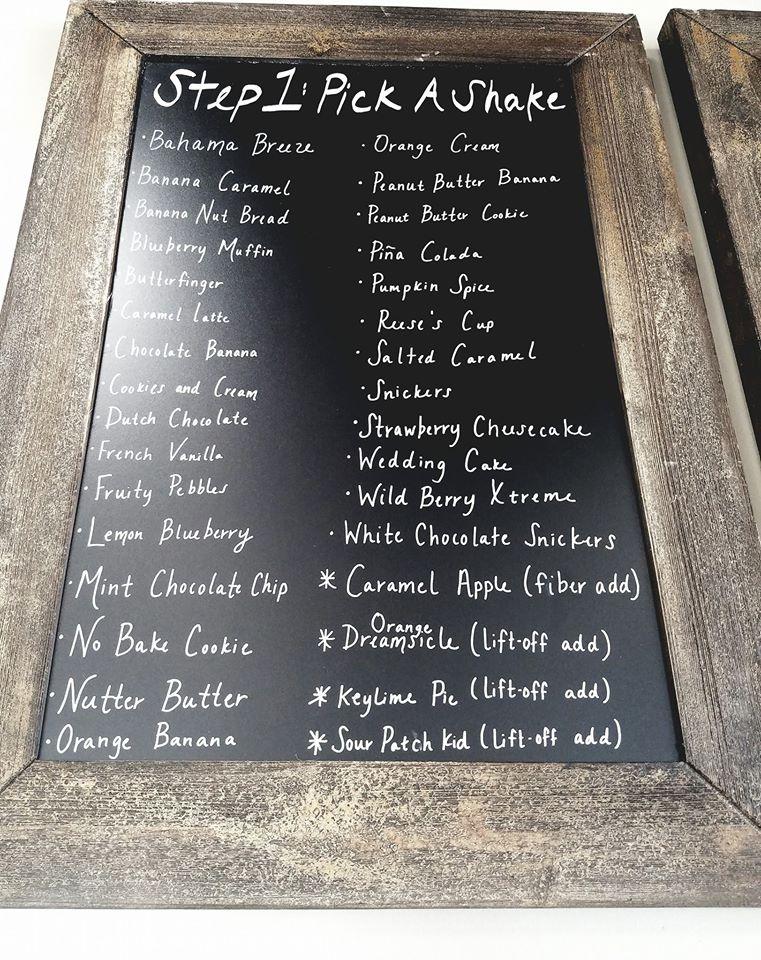 Step 1: Pick A Shake
· Bahama Breeze
· Banana Caramel
· Banana Nut Bread
· Blueberry Muffin
· Butterfinger
· Caramel Latte
· Chocolate Banana
· Cookies and Cream
· Dutch Chocolate
· French Vanilla
· Fruity Pebbles
· Lemon Blueberry
· Mint Chocolate Chip
· No Bake Cookie
· Nutter Butter
· Orange Banana
· Orange Cream
· Peanut Butter Banana
· Peanut Butter Cookie
· Piña Colada
· Pumpkin Spice
· Reese's Cup
· Salted Caramel
· Snickers
· Strawberry Cheesecake
· Wedding Cake
· Wild Berry Xtreme
· White Chocolate Snickers
* Caramel Apple (fiber add)
* Orange Dreamsicle (lift-off add)
* Keylime Pie (lift-off add)
* Sour Patch Kid (lift-off add)